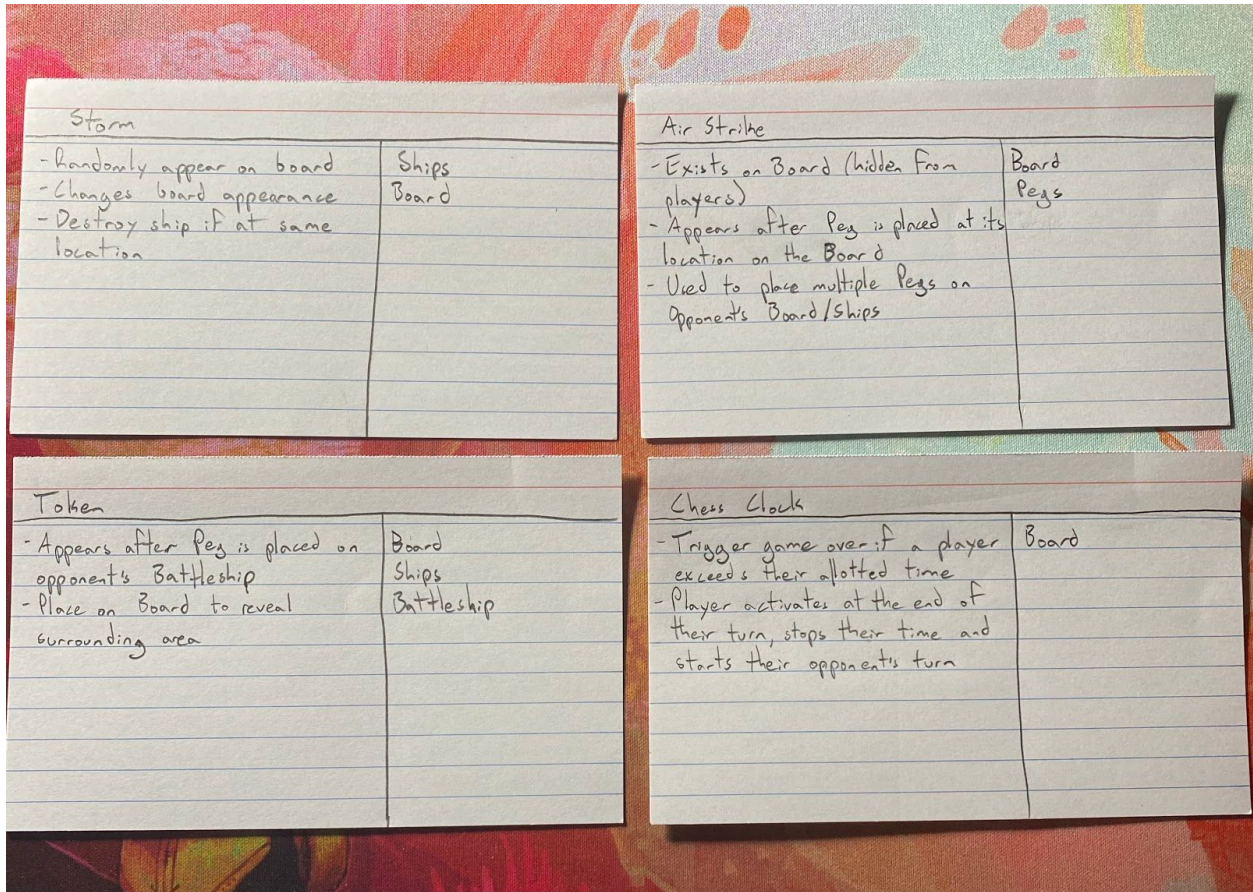 Storm
- Randomly appear on board
- Changes board appearance
- Destroy ship if at same
location
Ships
Board
Air Strike
- Exists on Board (hidden from
players)
- Appears after Peg is placed at its
location on the Board
- Used to place multiple Pegs on
Opponent's Board/Ships
Board
Pegs
Token
- Appears after Peg is placed on
opponent's Battleship
- Place on Board to reveal
surrounding area
Board
Ships
Battleship
Chess Clock
- Trigger game over if a player
exceeds their allotted time
- Player activates at the end of
their turn, stops their time and
starts their opponent's turn
Board